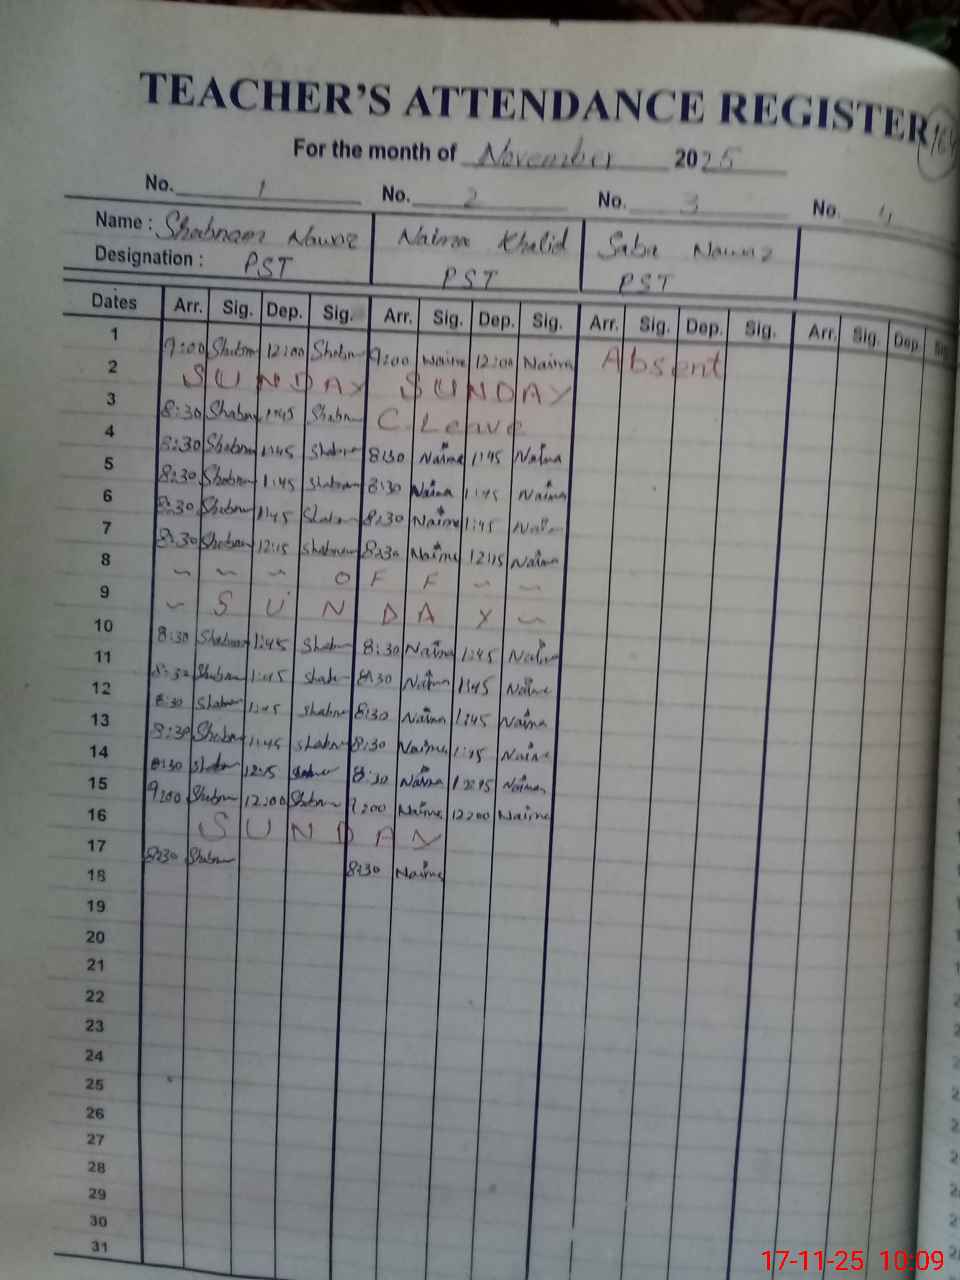 TEACHER'S ATTENDANCE REGISTER
For the month of November 2025
No. 1 No. 2 No. 3 No. 4
Name : Shabnam Nawaz Naima Khalid Saba Nawaz
Designation : PST PST PST
Dates Arr. Sig. Dep. Sig. Arr. Sig. Dep. Sig. Arr. Sig. Dep. Sig. Arr. Sig. Dep.
1 9:00 Shabnam 12:00 Shabnam 9:00 Naima 12:00 Naima Absent
2 SUNDAY SUNDAY
3 8:30 Shabnam 1:45 Shabnam C. Leave
4 8:30 Shabnam 1:45 Shabnam 8:30 Naima 1:45 Naima
5 8:30 Shabnam 1:45 Shabnam 8:30 Naima 1:45 Naima
6 8:30 Shabnam 1:45 Shabnam 8:30 Naima 1:45 Naima
7 8:30 Shabnam 12:15 Shabnam 8:30 Naima 12:15 Naima
8 O F F
9 S U N D A Y
10 8:30 Shabnam 1:45 Shabnam 8:30 Naima 1:45 Naima
11 8:30 Shabnam 1:45 Shabnam 8:30 Naima 1:45 Naima
12 8:30 Shabnam 1:45 Shabnam 8:30 Naima 1:45 Naima
13 8:30 Shabnam 1:45 Shabnam 8:30 Naima 1:45 Naima
14 8:30 Shabnam 12:15 Shabnam 8:30 Naima Naima
15 9:00 Shabnam 12:00 Shabnam 9:00 Naima 12:00 Naima
16 S U N D A Y
17 8:30 Shabnam 8:30 Naima
18
19
20
21
22
23
24
25
26
27
28
29
30
31
17-11-25 10:09